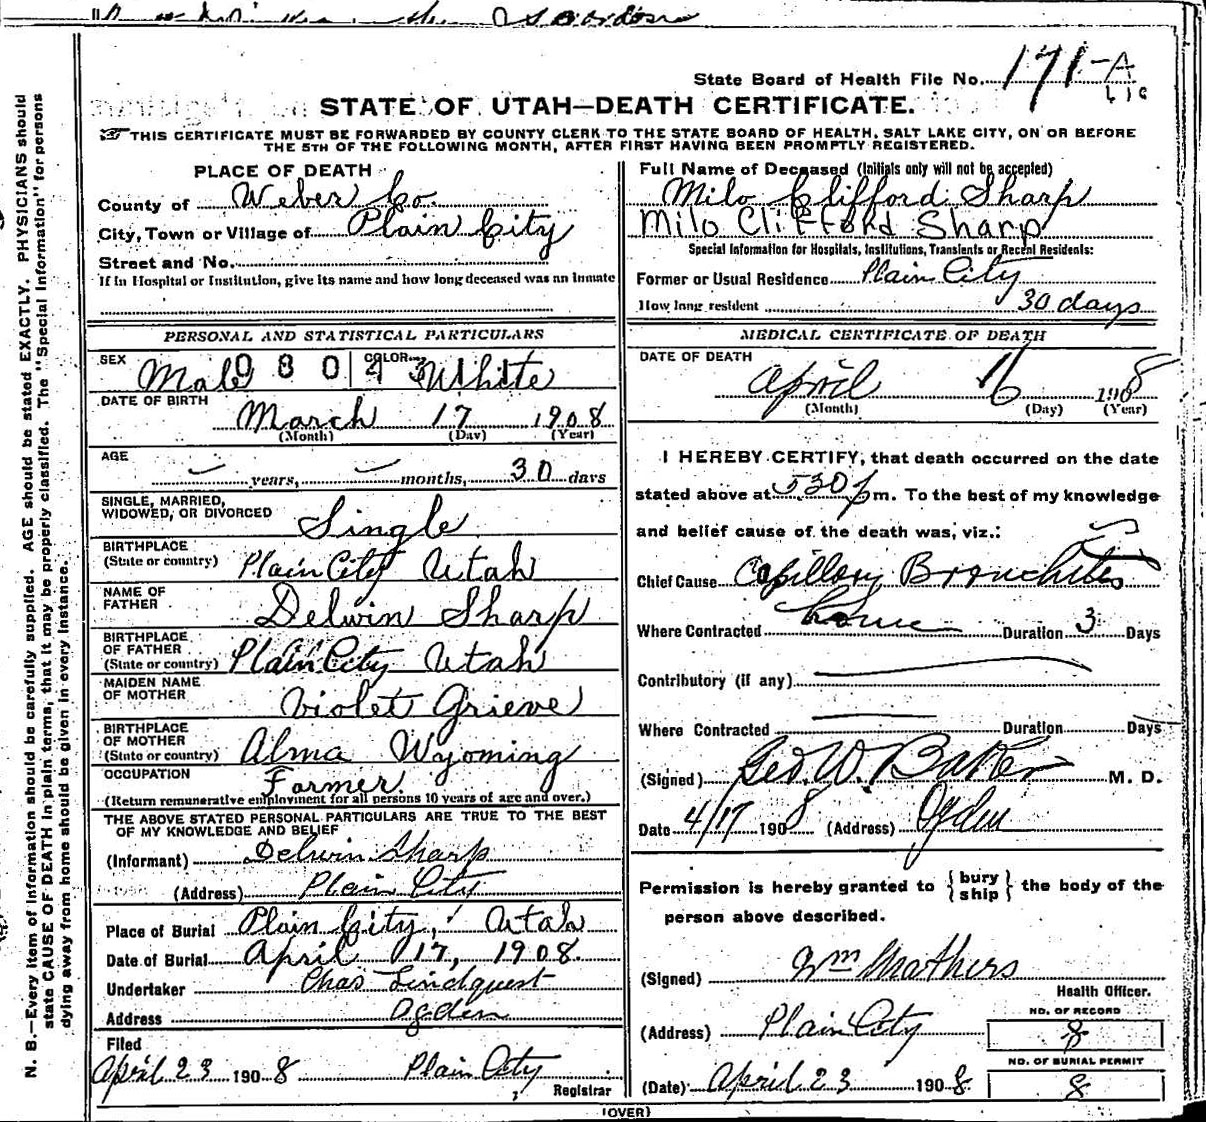 State Board of Health File No. 171-A
STATE OF UTAH—DEATH CERTIFICATE.
☞ THIS CERTIFICATE MUST BE FORWARDED BY COUNTY CLERK TO THE STATE BOARD OF HEALTH, SALT LAKE CITY, ON OR BEFORE
THE 5TH OF THE FOLLOWING MONTH, AFTER FIRST HAVING BEEN PROMPTLY REGISTERED.
PLACE OF DEATH
County of Weber Co.
City, Town or Village of Plain City
Street and No.
If in Hospital or Institution, give its name and how long deceased was an inmate
Full Name of Deceased (Initials only will not be accepted)
Milo Clifford Sharp
Milo Clifford Sharp
Special Information for Hospitals, Institutions, Transients or Recent Residents:
Former or Usual Residence Plain City
How long resident 30 days
PERSONAL AND STATISTICAL PARTICULARS
SEX Male COLOR White
DATE OF BIRTH
March 17 1908
(Month) (Day) (Year)
AGE
years, months, 30 days
SINGLE, MARRIED,
WIDOWED, OR DIVORCED Single
BIRTHPLACE
(State or country) Plain City Utah
NAME OF
FATHER Delwin Sharp
BIRTHPLACE
OF FATHER
(State or country) Plain City Utah
MAIDEN NAME
OF MOTHER Violet Grieve
BIRTHPLACE
OF MOTHER
(State or country) Alma Wyoming
OCCUPATION Farmer.
(Return remunerative employment for all persons 10 years of age and over.)
THE ABOVE STATED PERSONAL PARTICULARS ARE TRUE TO THE BEST
OF MY KNOWLEDGE AND BELIEF
(Informant) Delwin Sharp
(Address) Plain City
Place of Burial Plain City, Utah
Date of Burial April 17, 1908.
Undertaker Chas Lindquest
Address Ogden
Filed
April 23 1908 Plain City
Registrar
MEDICAL CERTIFICATE OF DEATH
DATE OF DEATH
April 16 1908
(Month) (Day) (Year)
I HEREBY CERTIFY, that death occurred on the date
stated above at 530 p m. To the best of my knowledge
and belief cause of the death was, viz.:
Chief Cause Capillary Bronchitis
Where Contracted home Duration 3 Days
Contributory (if any)
Where Contracted Duration Days
(Signed) Geo. W. Baker M. D.
Date 4/17 1908 (Address) Ogden
Permission is hereby granted to { bury ship } the body of the
person above described.
(Signed) Wm Mathers
Health Officer.
(Address) Plain City
NO. OF RECORD
8
(Date) April 23 1908
NO. OF BURIAL PERMIT
8
(OVER)
N. B.—Every item of information should be carefully supplied. AGE should be stated EXACTLY. PHYSICIANS should
state CAUSE OF DEATH in plain terms, that it may be properly classified. The "Special Information" for persons
dying away from home should be given in every instance.